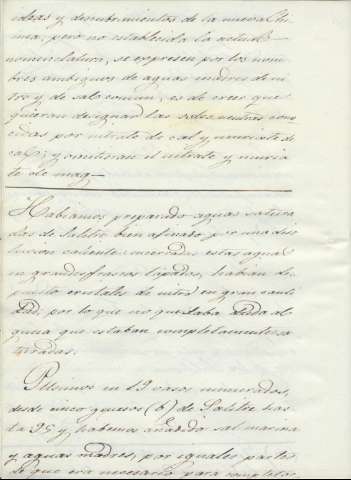 ideas y descubrimientos de la nueva Chi
mia, pero no establecida la actual
nomenclatura, se expresen por los nom
bres ambiguos de aguas madres de ni
tro y de sal comun, es de creer que
quieran designar las sales neutras cono
cidas por nitrato de cal y muriato de
cal, y omitieran el nitrato y muria
to de mag
Habiamos preparado aguas satura
das de salitre bien afinado por una diso
lucion caliente: encerradas estas aguas
en grandes frascos tapados, habian de
puesto cristales de nitro en gran canti
dad, por lo que no quedaba duda al
guna que estaban completamente sa
turadas.
Pusimos en 19 vasos numerados,
desde cinco gruesos (b) de Salitre has
ta 95 y habemos añadido sal marina
y aguas madres, por iguales partes
lo que era necesario para completar